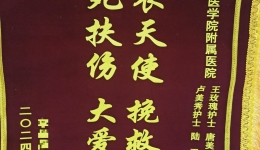 医学院附属医院
王玫瑰护士 唐美
卢美秀护士 陆
衣天使 挽救
死扶伤 大爱
二〇二四